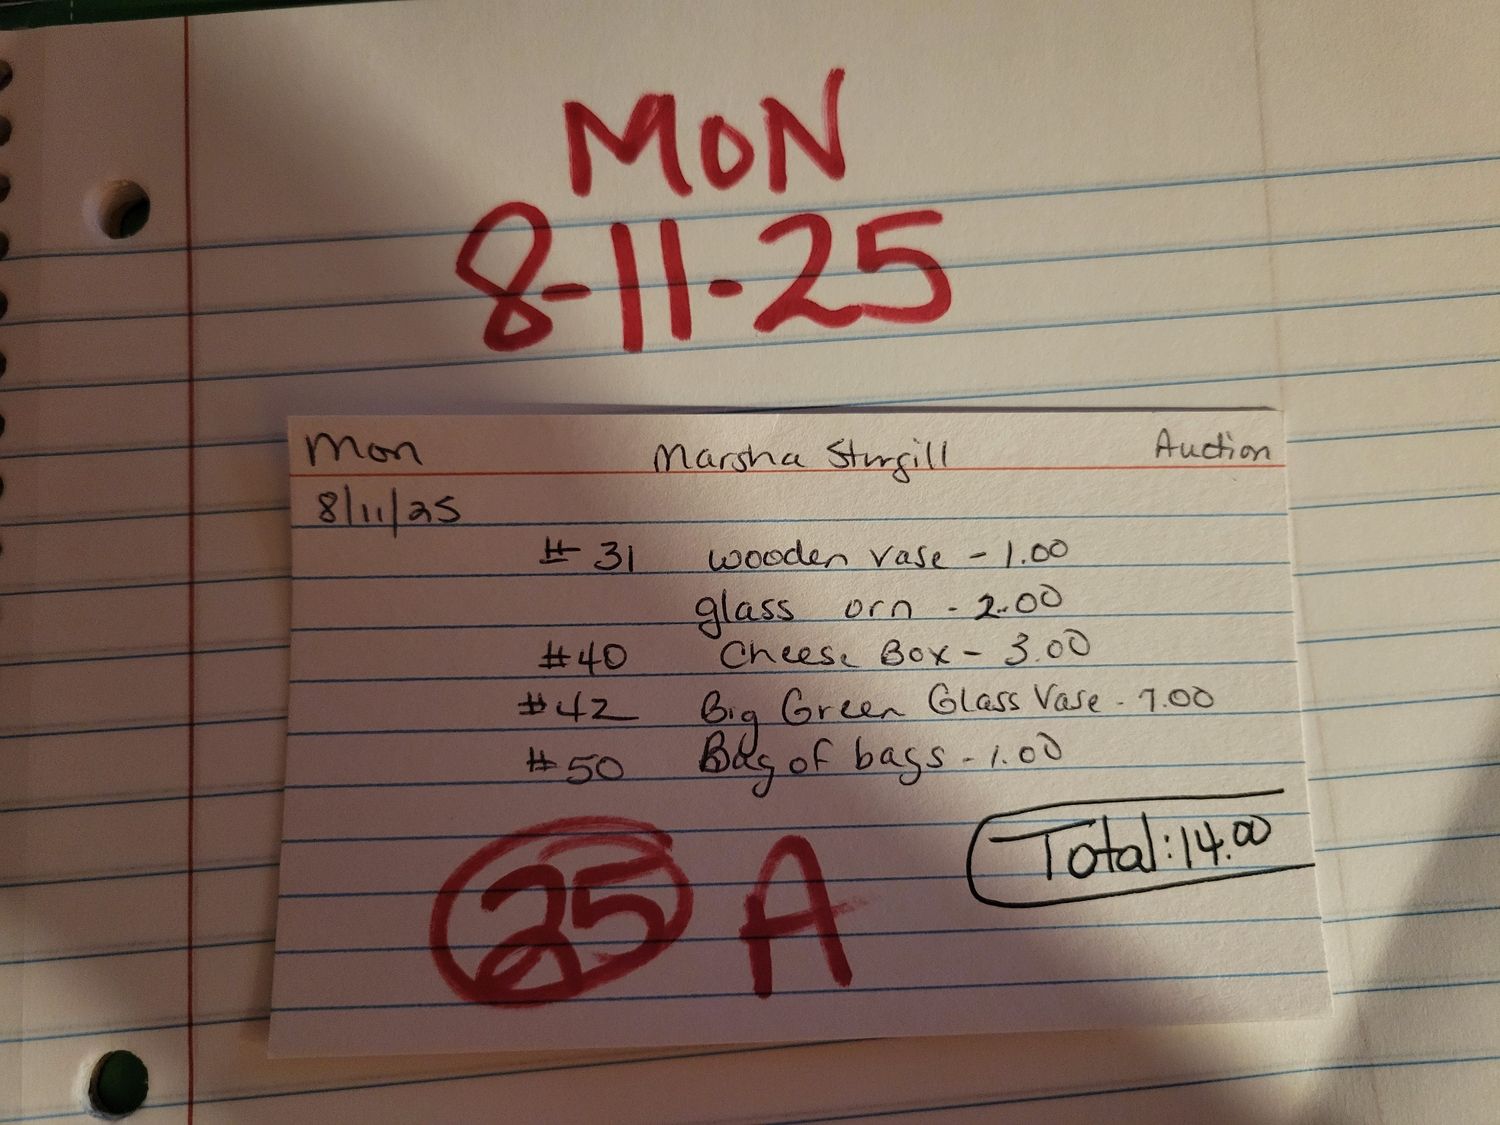 MON
8-11-25
Mon Marsha Sturgill Auction
8/11/25
# 31 wooden vase - 1.00
glass orn - 2.00
#40 Cheese Box - 3.00
#42 Big Green Glass Vase - 7.00
#50 Bag of bags - 1.00
Total: 14.00
25 A